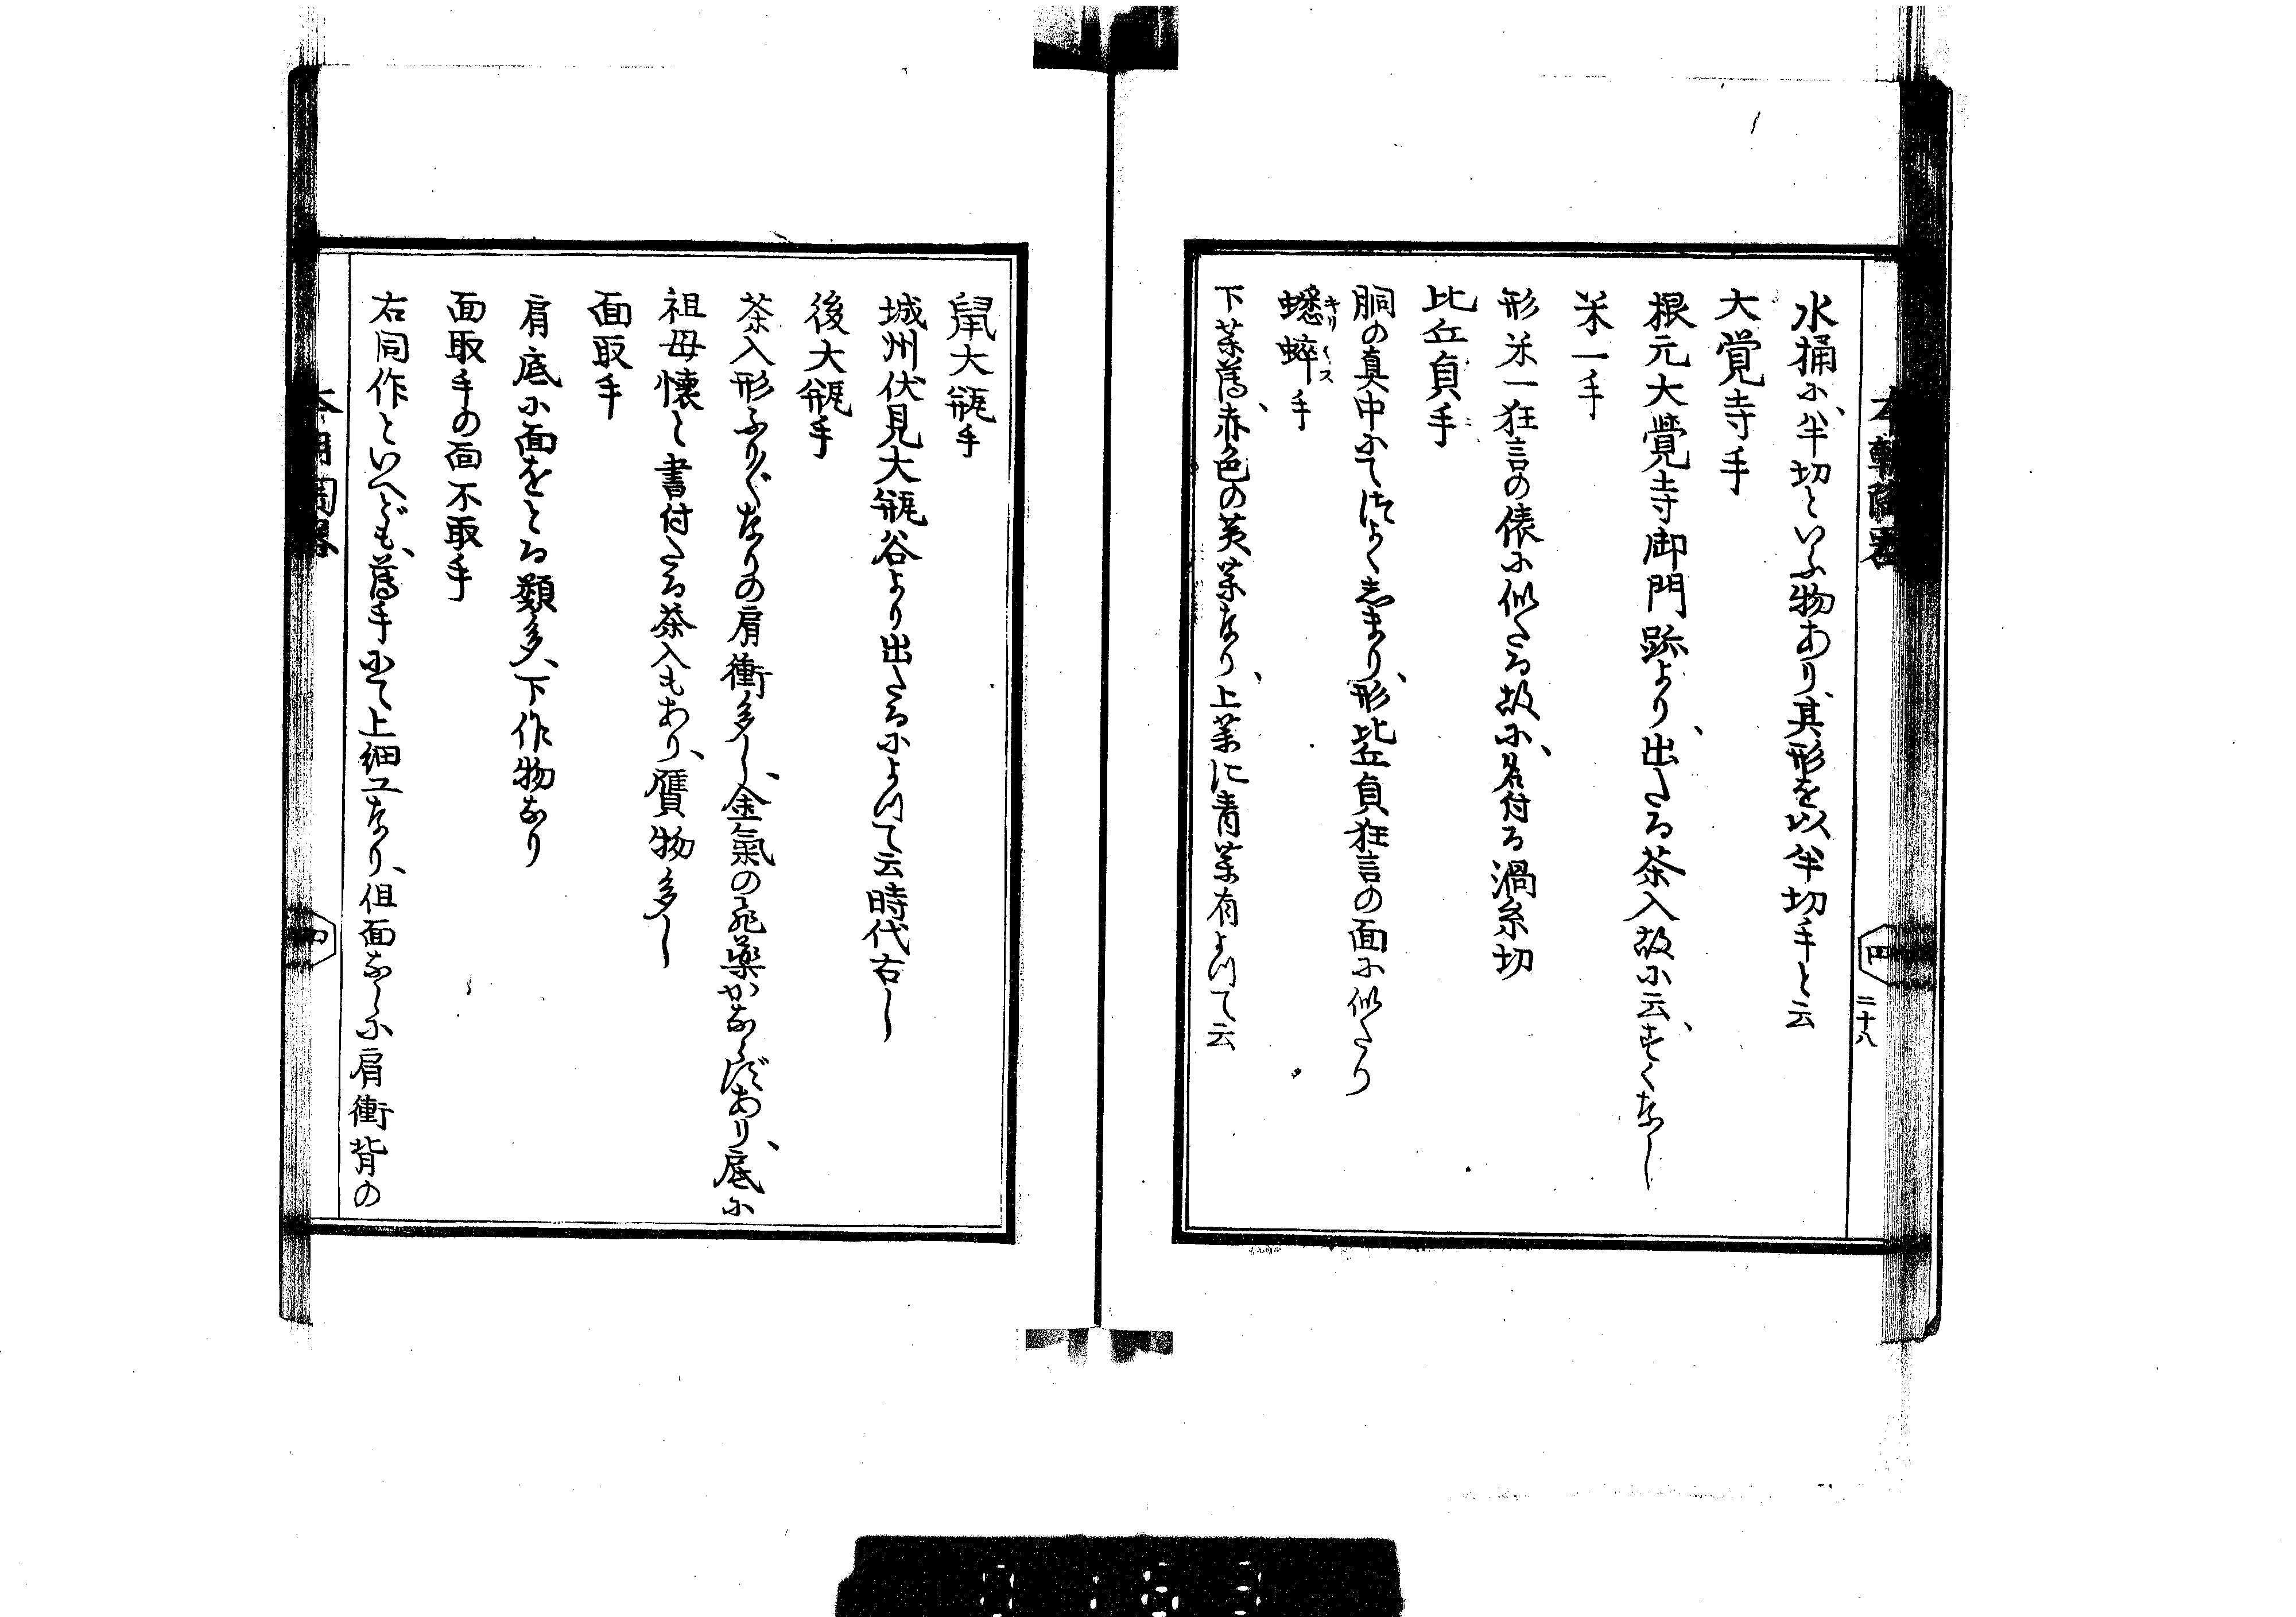 二十八
水桶に、半切といふ物あり、其形を以半切手と云
大覚寺手
根元大覺寺御門跡より、出たる茶入故に云、すくなし
米一手
形米一狂言の俵に似たる故に、名付る渦糸切
比丘貞手
胴の真中にてほそくしまり、形比丘貞狂言の面に似たり
蟋蟀手
キリ〱ス
下薬薄、赤色の黄薬なり、上薬に青薬有よつて云
大瓶手
城州伏見大瓶谷より出たるによつて云時代右し
後大瓶手
茶入形ふりぐなりの肩衝多し、金氣の飛薬かならずあり、底に
祖母懐と書付たる茶入もあり、贋物多し
面取手
肩底に面をとる類多、下作物なり
面取手の面不取手
右同作といへども、薄手にて上細工なり、但面なしに肩衝背の
四